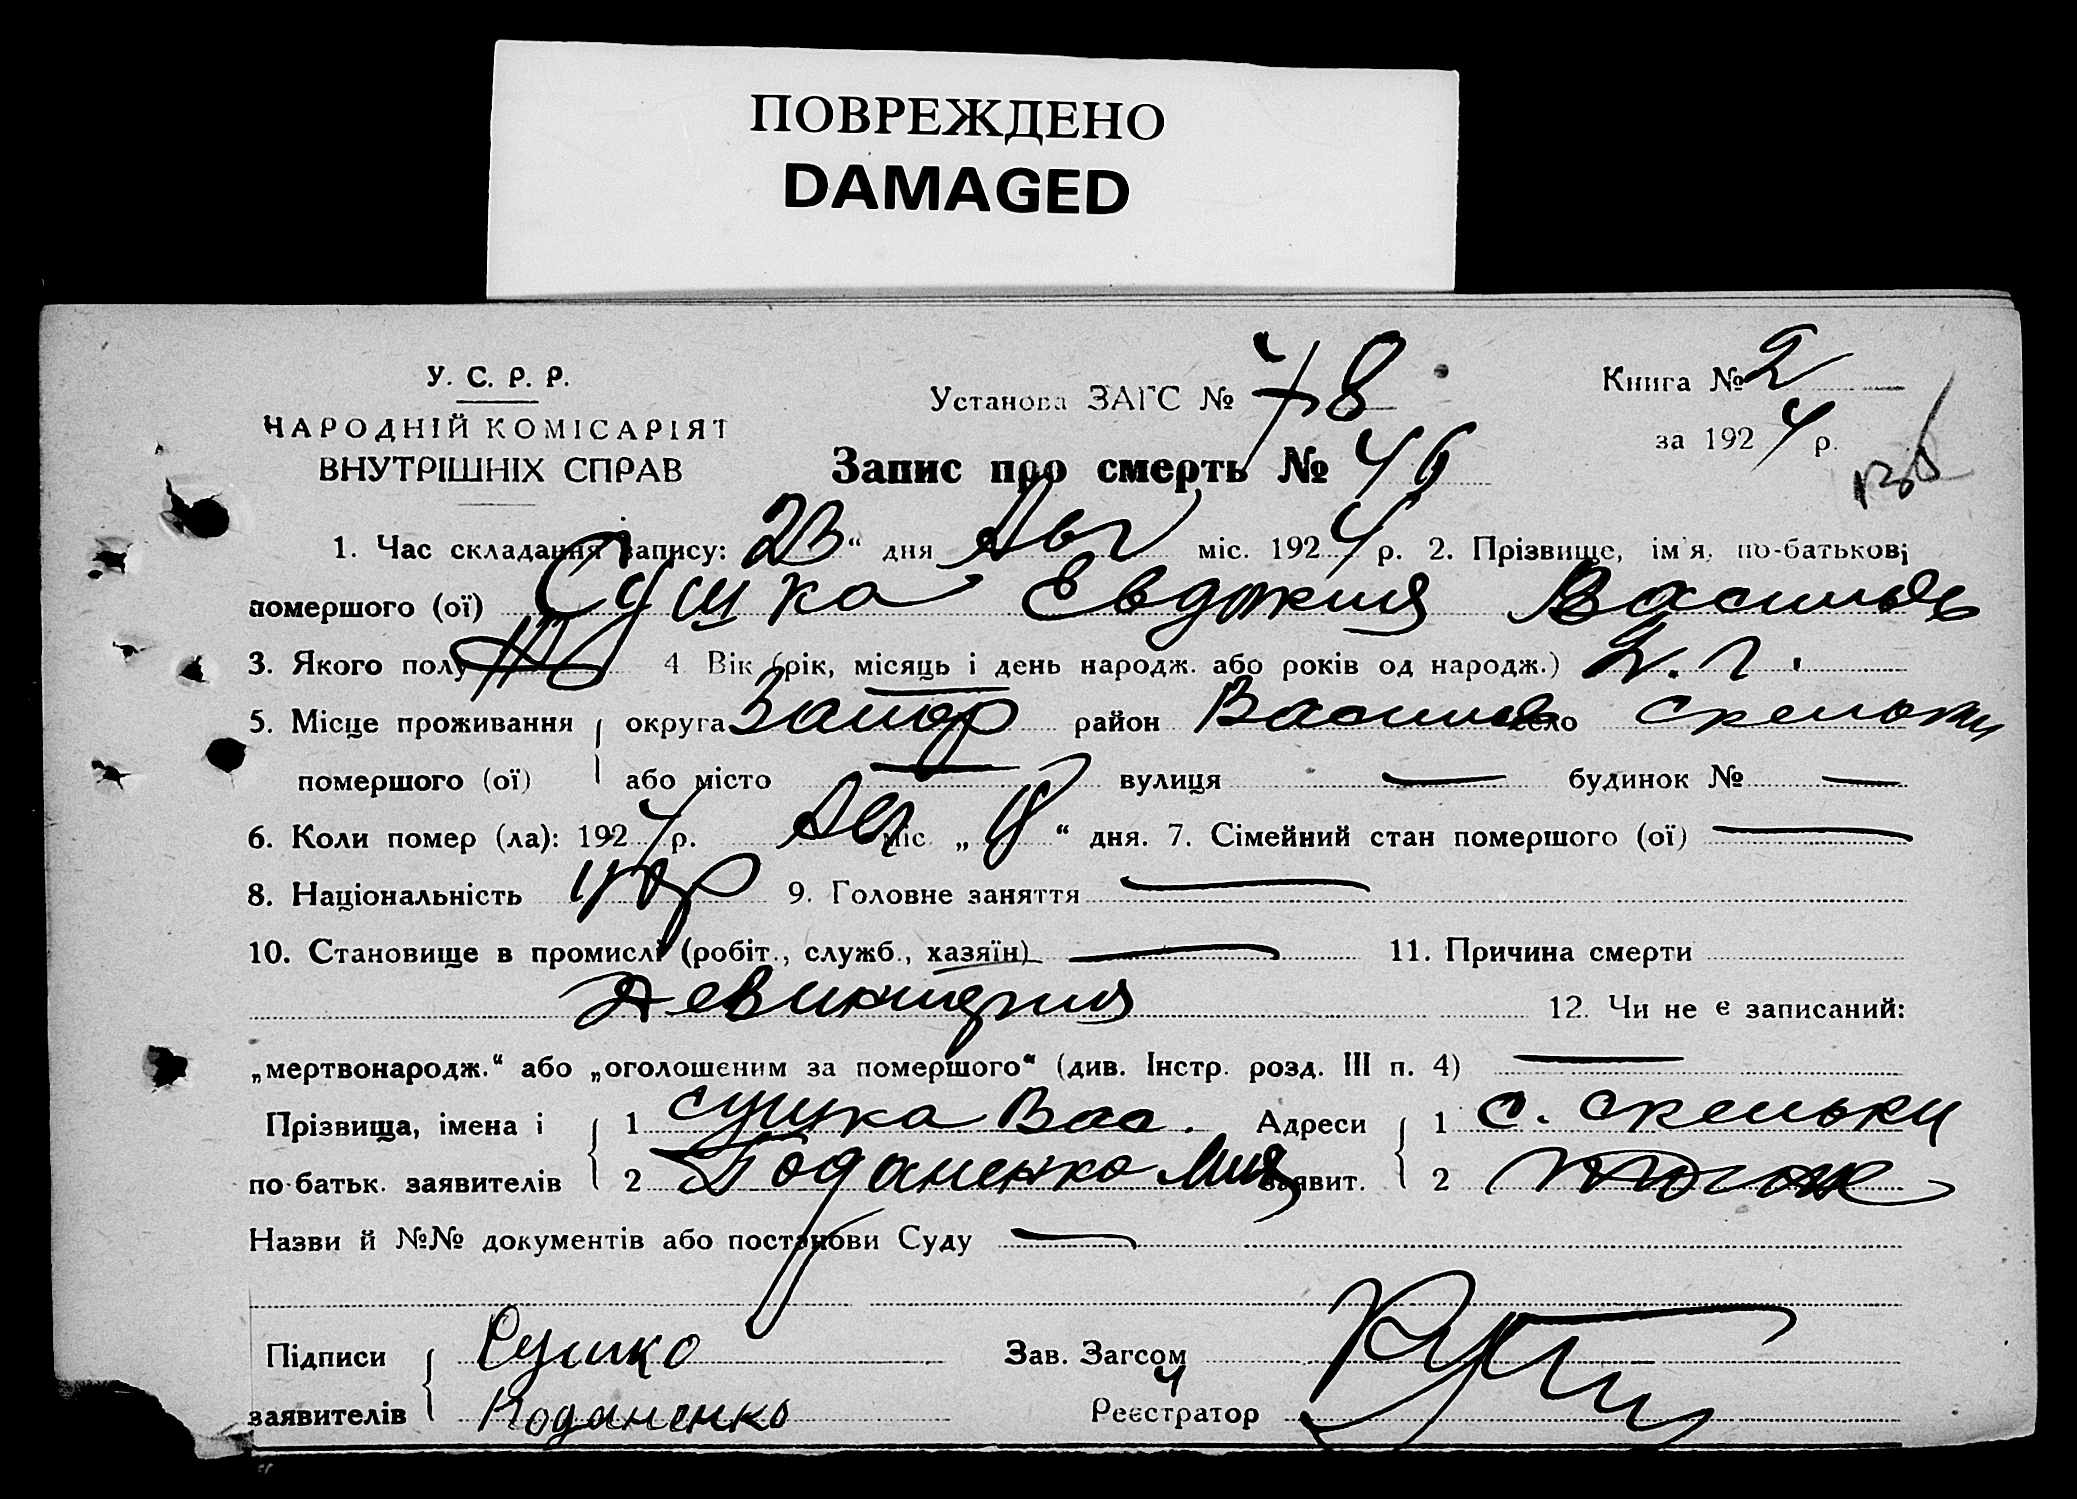 ПОВРЕЖДЕНО
DAMAGED
У. С. Р. Р.
НАРОДНІЙ КОМІСАРІЯТ
ВНУТРІШНІХ СПРАВ
Установа ЗАГС № 78
Книга № 2
за 1924 р.
Запис про смерть № 46
1. Час складання запису: 23 “ дня Авг міс. 1924 р. 2. Прізвище, ім'я, по-батькові
помершого (ої) Сушка Евдокия Василье
3. Якого полу 4 Вік (рік, місяць і день народж. або років од народж.) 2. г.
5. Місце проживання округа Запор район Василев село Скельки
помершого (ої) або місто — вулиця — будинок № —
6. Коли помер (ла): 1924 р. Авг міс. „ “ дня. 7. Сімейний стан помершого (ої) —
8. Національність укр 9. Головне заняття —
10. Становище в промислі (робіт., служб., хазяїн) — 11. Причина смерти
Дезинтерия 12. Чи не є записаний:
„мертвонародж.“ або „оголошеним за помершого“ (див. Інстр. розд. III п. 4) —
Прізвища, імена і 1 Сушка Вас. Адреси 1 с. Скельки
по-батьк. заявителів 2 Коданенко заявит. 2
Назви й №№ документів або постанови Суду —
Підписи Сушко Зав. Загсом
заявителів Коданенко Реєстратор